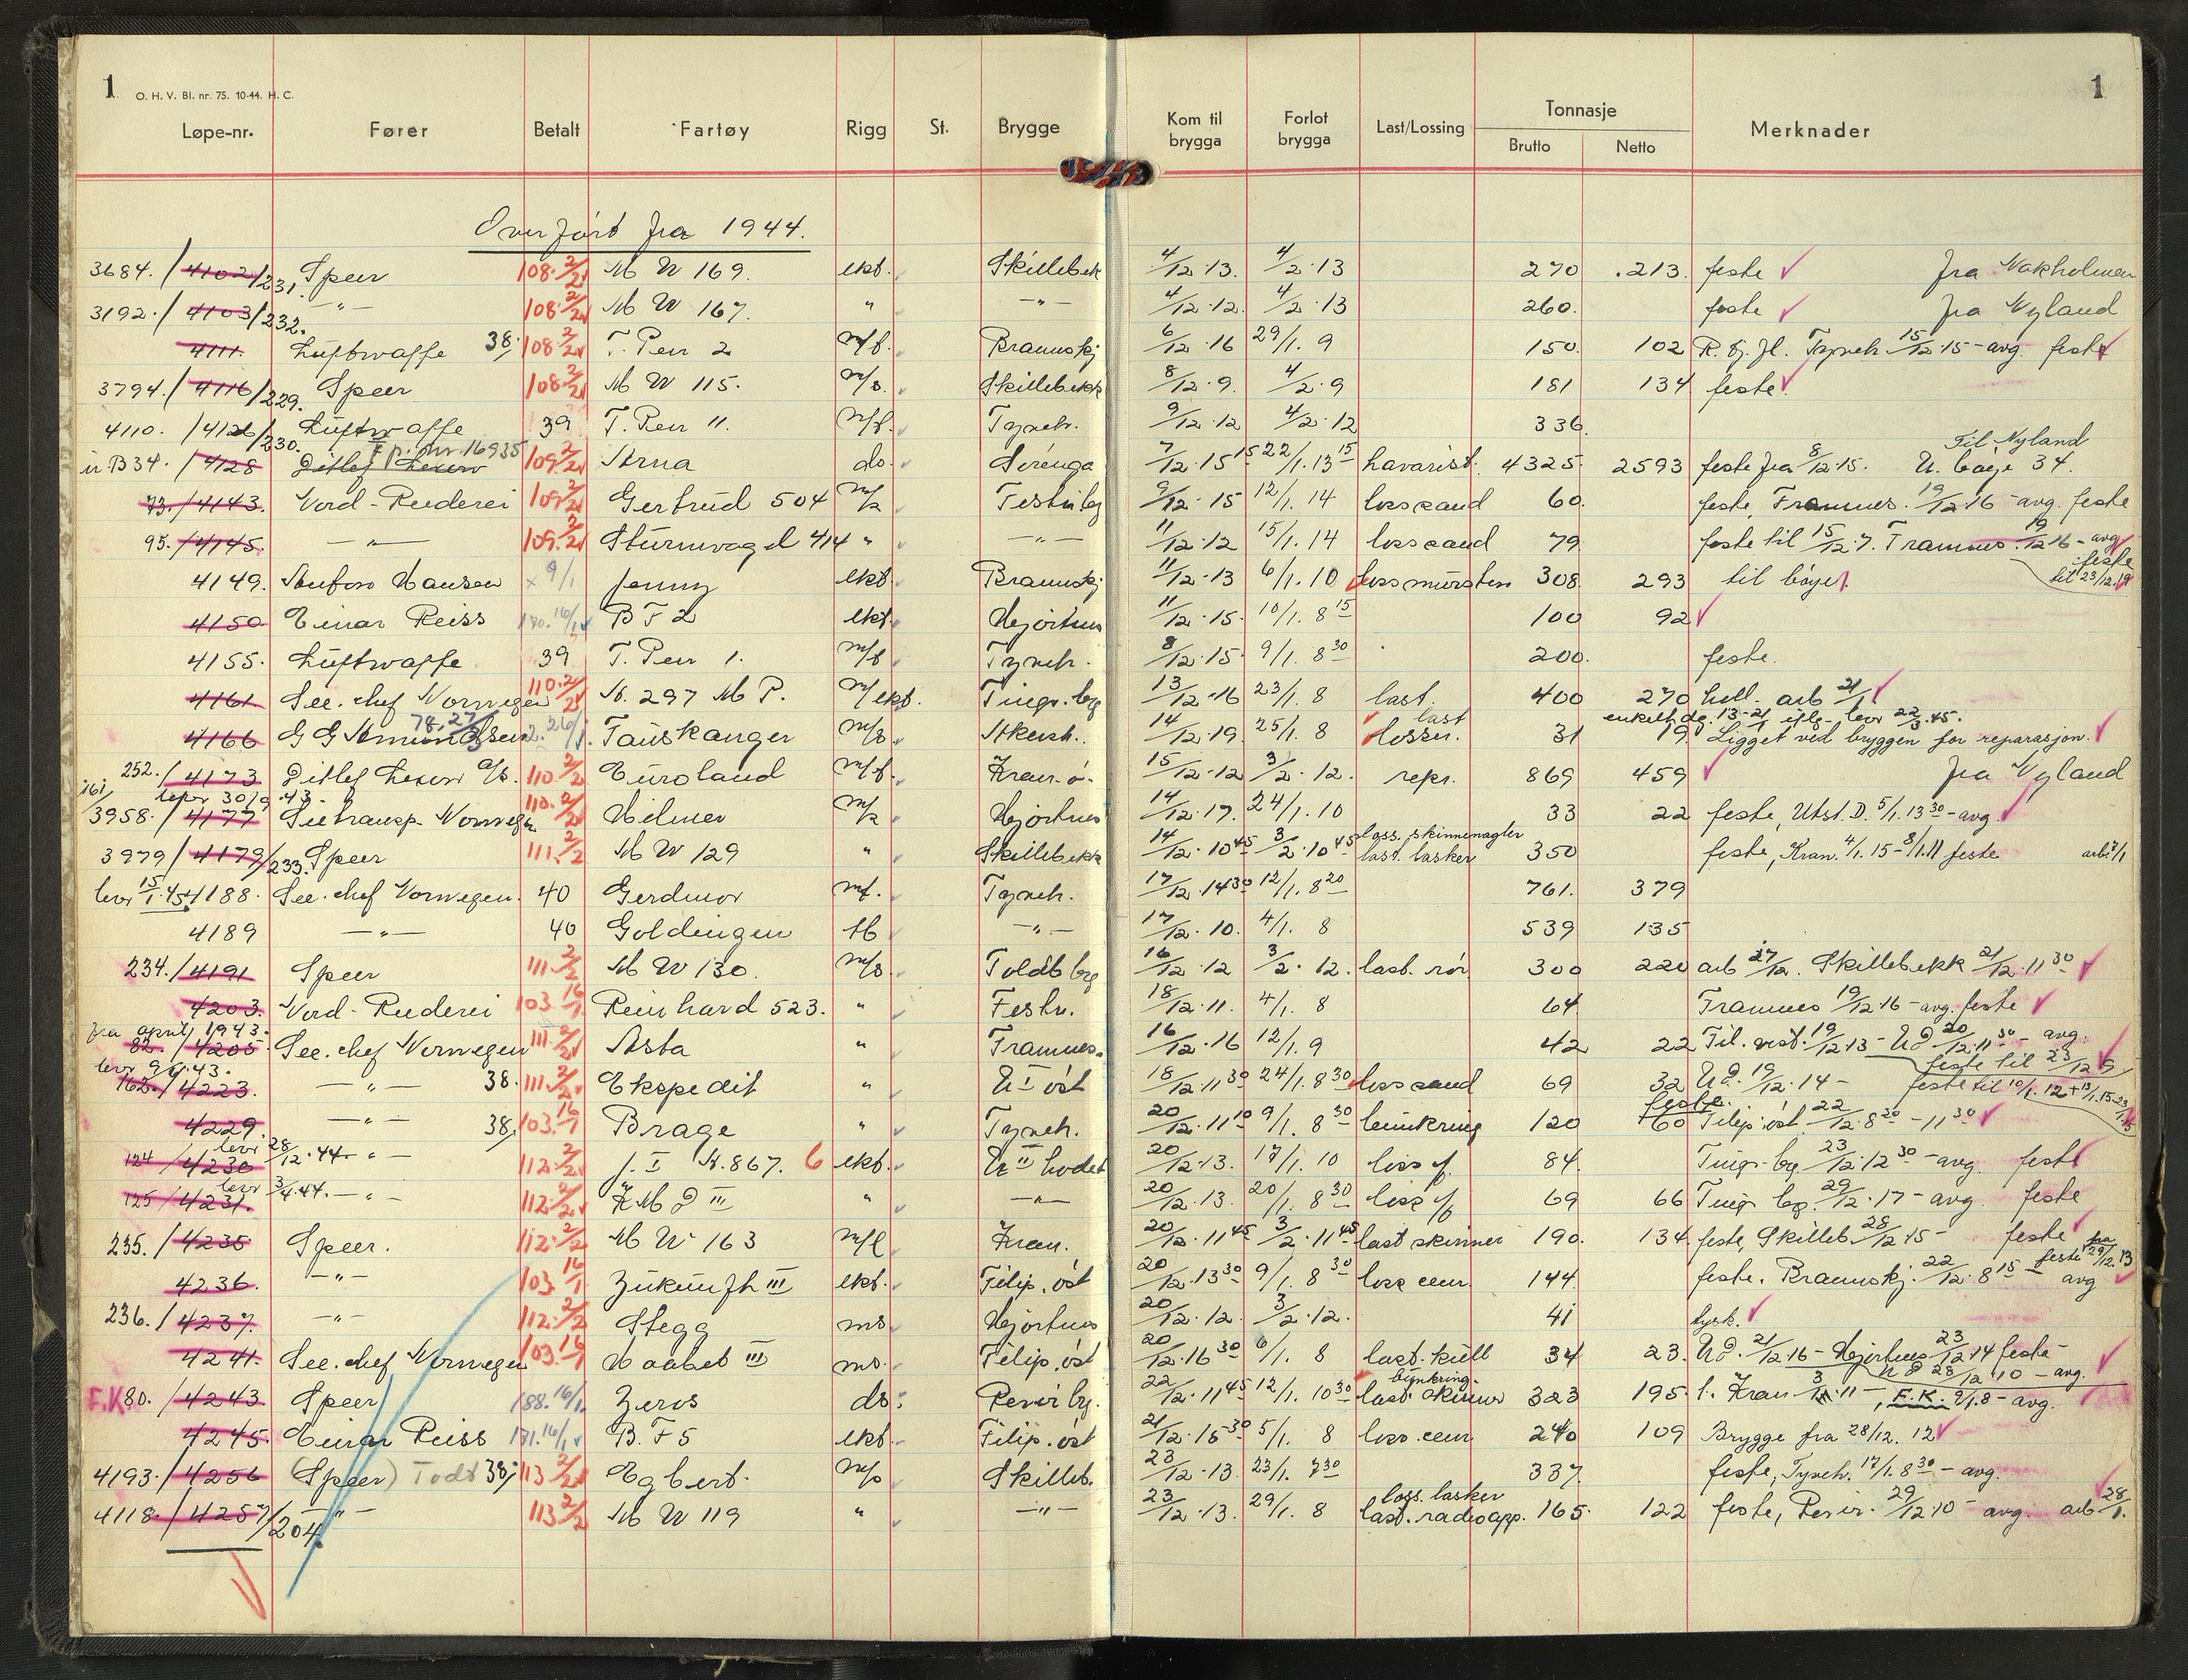 1 O. H. V. Bl. nr. 75. 10-44. H. C. 1
Løpe-nr. Fører Betalt Fartøy Rigg St. Brygge Kom til brygga Forlot brygga Last/Lossing Tonnasje Brutto Netto Merknader
Overført fra 1944.
3684. / 4102/231. Speer 108. 2/2 M W 169. lekt. Skillebek 4/12.13. 4/2.13 270 213. feste fra Nakholmen
3192. / 4103/232. -"- 108. 2/2 M W 167. " -"- 4/12.12. 4/2.13 260. feste fra Nyland
4111. Luftwaffe 38. 108. 2/2 T. Pen 2 m/f. Brannskj 6/12.16 29/1.9 150. 102 Tynch. 15/12.15 - avg. feste
3794. / 4116/229. Speer 108. 2/2 M W 115. m/s. Skillebekk 8/12.9. 4/2.9 181 134 feste
4110. / 4126/230. Luftwaffe 39 T. Pen 11. m/f. Tynch. 9/12.12 4/2.12 336.
B34. / 4128 Ditlef Lexow 16935 109. 2/2 Arna ds. Sørenga 7/12.15 15 22/1.13 15 havarist. 4325. 2593 feste fra 8/12.15. Til Nyland U. bøye 34.
73. / 4143. Nord-Reederei 109. 2/2 Gertrud 504 m/k Festn.bg 9/12.15 12/1.14 loss sand 60. feste, Framnes. 19/12.16 - avg. feste
95. / 4145. -"- 109. 2/2 Sturmvogel 414 " -"- 11/12.12 15/1.14 loss sand 79 feste til 15/12.7. Framnes. 19/12.16 - avg feste til 23/12.19
4149. Hansen x 9/1 Jenny lekt. Brannskj 11/12.13 6/1.10 loss mursten 308. 293 til bøye
4150 Einar Reiss 170. 16/1 B F 2 lekt. Hjortnes 11/12.15. 10/1.8 15 100 92
4155. Luftwaffe 39 T. Pen 1. m/f Tynch. 8/12.15. 9/1.8 30 200. feste.
4161. See. chef Norwegen 110. 2/2 N. 297 M P. m/lekt. Tingv. bg 13/12.16 23/1.8 last. 400 270 hell. arb 21/1
4166 G G Amundsen 78. 27/3 2. 26/1. Tauskanger m/s. Akersh. 14/12.19. 25/1.8 last losser. 31 19. enkelt dg. 13-21/1 iflg. levr 22/3.45. Ligget ved bryggen for reparasjon.
252. / 4173 Ditlef Lexow A/S. 110. 2/2 Euroland m/f. Kran.ø. 15/12.12 3/2.12. repr. 869 459 fra Nyland
161/ 3958. / 4177 levr 30/9.43. Seetransp. Norwegen 110. 2/2 Hilmer m/k Hjortnes 14/12.17. 24/1.10 33 22 feste, Utst. D. 5/1.13 30 - avg.
3979 / 4179/233. Speer 111. 2/2 M W 129 " Skillebekk 14/12.10 45 3/2.10 45 loss. skinnenagler last. lasker 350 feste, Kran. 4/1.15 - 8/1.11 feste arb. 7/1
levr 15/1.45 4188. See. chef Norwegen. 40 Gerdmor mf. Tynch. 17/12.14 30 12/1.8 20 761. 379
4189 -"- 40 Goldingen tb -"- 17/12.10. 4/1.8 539 135
234. / 4191 Speer 111. 2/2 M W 130. m/s Toldb bg 16/12.12 3/2.12. last. rör 300 220 arb 27/12. Skillebekk 21/12.11 30
4203. Nord-Reederei 103. 16/1 Reinhard 523. " Festn. 18/12.11. 4/1.8 64 Framnes 19/12.16 - avg. feste
fra april 1943. 82. / 4205. See. chef Norwegen 111. 2/2 Asta " Framnes. 16/12.16 12/1.9 42 22 Til. vest. 19/12.13 - U2 20/12.11 30 - avg. feste til 23/12.9
levr 9/4.43. 162. / 4223. -"- 38. 111. 2/2 Ekspedit " U I øst 18/12.11 30 24/1.8 30 loss sand 69 32 U2. 19/12.14 - feste til 10/1.12
4229. -"- 38. 103. 16/1 Brage " Tynch. 20/12.11 10 9/1.8 30 bunkring 120 60 feste. Filip. øst. 22/12.8 20 - 11 30
124 / 4230 levr 28/12.44. -"- 112. 2/2 J. I N. 867. 6 lekt. U II hodet 20/12.13. 17/1.10 loss f. 84. Tingv. bg. 23/12.12 30 - avg. feste
125 / 4231. levr 3/4.44. -"- 112. 2/2 K M 2 III " -"- 20/12.13. 20/1.8 30 loss f. 69 66 Tingv. bg. 29/12.17 - avg feste
235. / 4235 Speer. 112. 2/2 M W 163 m/l Kran. 20/12.11 45 3/2.11 45 last skinner 190. 134. feste, Skilleb 28/12.15 - feste
4236. -"- 103 16/1 Zukunft III lekt. Filip. øst 20/12.13 30 9/1.8 30 loss cem. 144. feste. Brannskj. 22/12.8 15 - feste fra 29/12.13 avg
236. / 4237. -"- 112. 2/2 Stegg ms. Hjortnes 20/12.12. 3/2.12. 41 tysk.
4241. See. chef Norwegen 103. 16/1 Haabet III ms. Filip. øst 20/12.16 30 6/1.8 last. kull 34 23. U2. 21/12.16 - Hjortnes 23/12.14 feste - U2 28/12.10 - avg.
F.K 80. / 4243. Speer 188. 16/1. Zeros ds. Revir bg. 22/12.11 45 12/1.10 30 bunkring. last. skinner 323 195. l. Kran 3/1.11 -, F.K. 9/1.8 - avg.
4245. Einar Reiss 171. 16/1 B. F 5 lekt. Filip. øst 21/12.15 30 5/1.8 loss. cem. 240 109 Brygge fra 28/12. 12
4193. / 4256 (Speer) Todt 38. 113 2/2 Egbert. m/s Skilleb. 23/12.13. 23/1.7 30 337. feste, Tynch. 17/1.8 30 - avg.
4118. / 4257/204 -"- 113 2/2 M W 119 " -"- 23/12.13. 29/1.8 loss. lasker last. radioapp. 165. 122 feste, Revir. 29/12.10 - avg. arb 28/1.